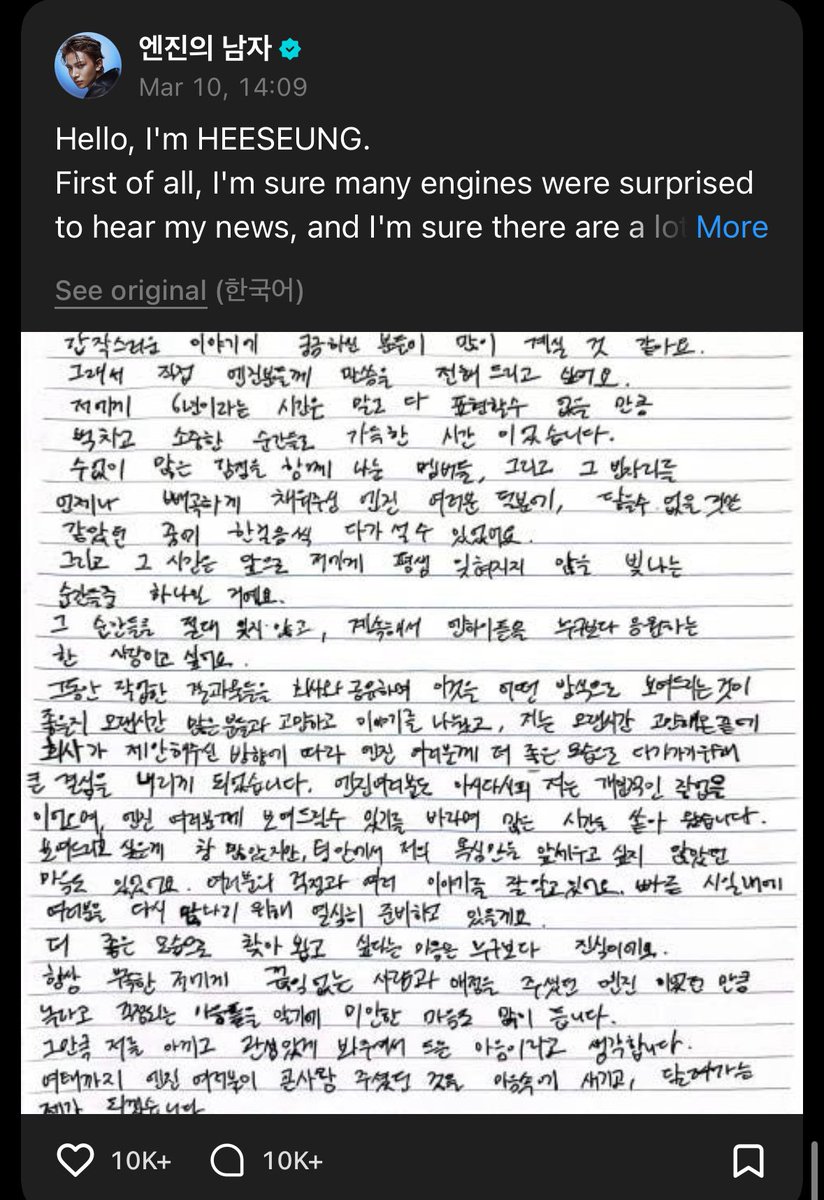 엔진의 남자
Mar 10, 14:09
Hello, I'm HEESEUNG.
First of all, I'm sure many engines were surprised
to hear my news, and I'm sure there are a lot More
See original (한국어)
갑작스러운 이야기에 궁금하신 분들이 많이 계실 것 같아요.
그래서 직접 엔진분들께 말씀을 전해 드리고 싶어요.
저에게 6년이라는 시간은 말로 다 표현할수 없을 만큼
벅차고 소중한 순간들로 가득한 시간 이었습니다.
수없이 많은 감정을 함께 나눈 멤버들, 그리고 그 빈자리를
언제나 빼곡하게 채워주신 엔진 여러분 덕분에, 닿을수 없을 것만
같았던 꿈에 한걸음씩 다가 설 수 있었어요.
그리고 그 시간은 앞으로 저에게 평생 잊혀지지 않을 빛나는
순간들중 하나일 거에요.
그 순간들을 절대 잊지 않고, 계속해서 엔하이픈을 누구보다 응원하는
한 사람이고 싶어요.
그동안 작업한 결과물들을 회사와 공유하며 이것을 어떤 방식으로 보여드리는 것이
좋을지 오랜시간 많은분들과 고민하고 이야기를 나눴고, 저는 오랜시간 고민해온 끝에
회사가 제안해주신 방향에 따라 엔진 여러분께 더 좋은 모습으로 다가가기위해
큰 결심을 내리게 되었습니다. 엔진여러분도 아시다시피 저는 개인적인 작업을
이어오며, 엔진 여러분께 보여드릴수 있기를 바라며 많은 시간을 쏟아 왔습니다.
보여드리고 싶은게 참 많았지만, 팀 안에서 저의 욕심만을 앞세우고 싶지 않았던
마음도 있었어요. 여러분의 걱정과 여러 이야기를 잘 알고 있어요. 빠른 시일내에
여러분을 다시 만나기 위해 열심히 준비하고 있을게요.
더 좋은 모습으로 찾아 뵙고 싶다는 마음은 누구보다 진심이에요.
항상 부족한 저에게 끊임없는 사랑과 애정을 주셨던 엔진 이었던 만큼
놀라고 걱정되는 마음들을 알기에 미안한 마음도 많이 듭니다.
그만큼 저를 아끼고 관심있게 봐주셔서 드는 마음이라고 생각합니다.
여태까지 엔진 여러분이 큰사랑 주셨던 것을 마음속에 새기고, 달려가는
제가 되겠습니다
10K+ 10K+